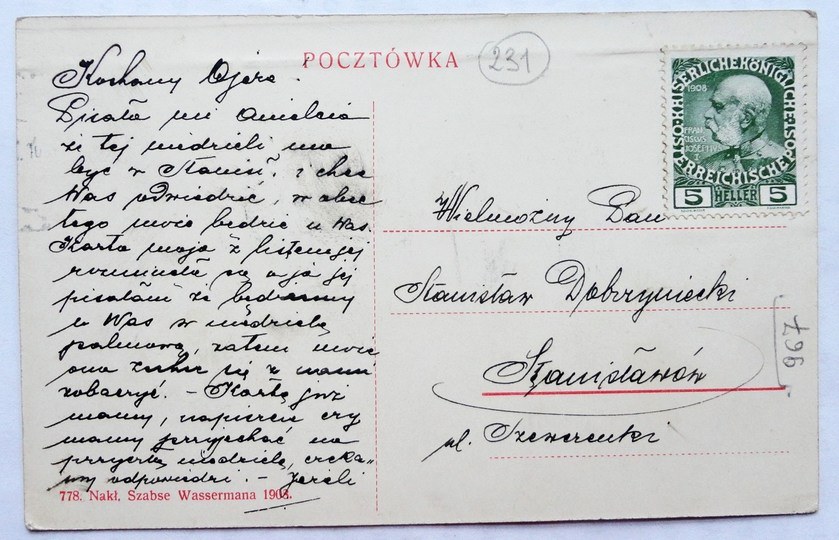 POCZTÓWKA
231
Kochany Ojcze.
Pisała mi Anielcia
że tej niedzieli ma
być w Stanisł. i chce
Was odwiedzić, w obec
tego może będzie u Was.
Karta moja z listem jej
rozminęła się a ja jej
pisałam że będziemy
u Was w niedzielę
palmową, zatem może
ona z nami
zobaczyć. – Kartę już
mamy, napiszcie czy
mamy przyjechać na
przyszłą niedzielę, czeka=
my odpowiedzi. – Jeżeli
778. Nakł. Szabse Wassermana 1908.
KAISERLICHE KÖNIGLICHE
ÖSTERREICHISCHE POST
1908
FRAN
CISCUS
IOSEFUS
I
5 HELLER 5
Wielmożny Pan
Stanisław Dobrzyniecki
Stanisławów
ul. Szewczenki
967